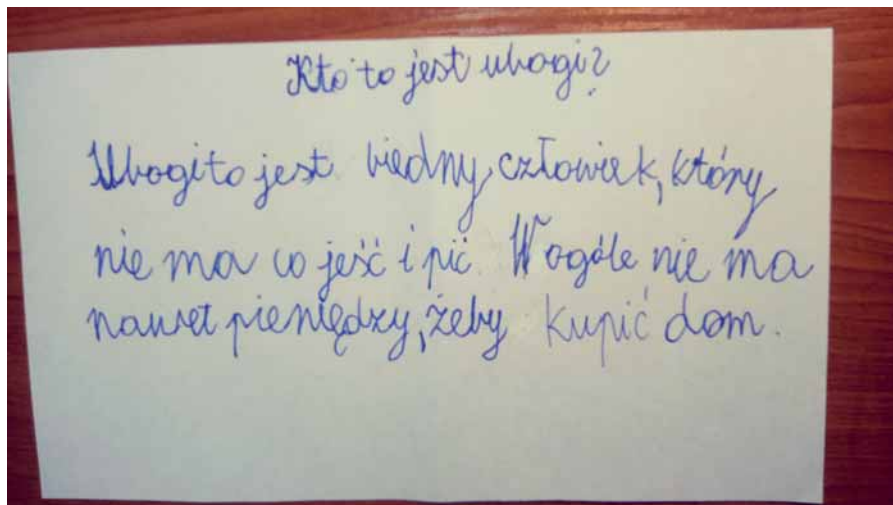 Kto to jest ubogi?
Ubogi to jest biedny człowiek, który
nie ma co jeść i pić. W ogóle nie ma
nawet pieniędzy, żeby kupić dom.